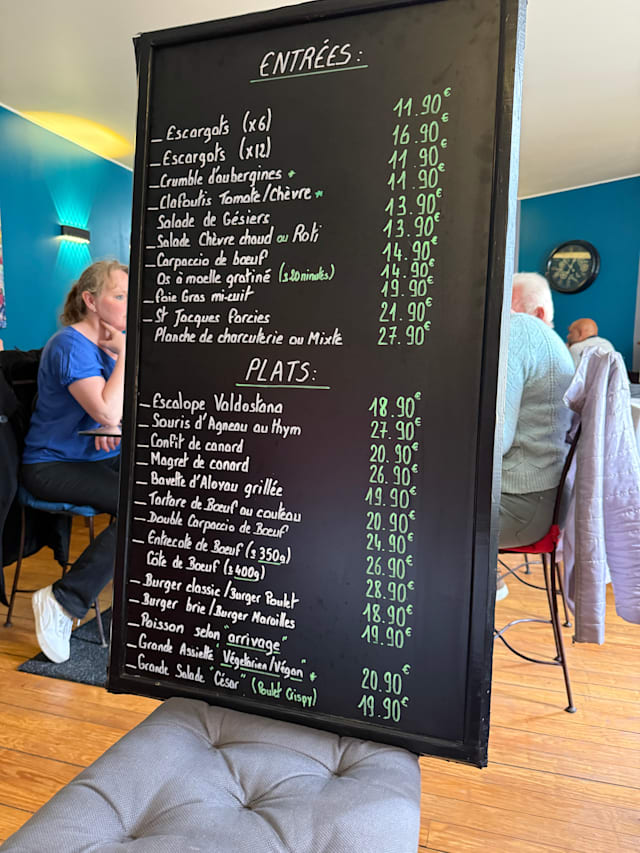 ENTRÉES:
_Escargots (x6) 11.90€
_Escargots (x12) 16.90€
_Crumble d'aubergines * 11.90€
_Clafoutis Tomate/Chèvre * 11.90€
Salade de Gésiers 13.90€
_Salade Chèvre chaud ou Roti 13.90€
_Carpaccio de bœuf 14.90€
Os à moelle gratiné (±20minutes) 14.90€
_Foie Gras mi-cuit 19.90€
_St Jacques Parcies 21.90€
Planche de charcuterie ou Mixte 27.90€
PLATS:
_Escalope Valdostana 18.90€
_Souris d'Agneau au thym 27.90€
_Confit de canard 20.90€
_Magret de canard 26.90€
_Bavette d'Aloyau grillée 19.90€
_Tartare de Bœuf au couteau 20.90€
_Double Carpaccio de Bœuf 24.90€
_Entrecote de Bœuf (±350g) 26.90€
Côte de Boeuf (±400g) 28.90€
_Burger classic/Burger Poulet 18.90€
_Burger brie/Burger Maroilles 19.90€
_Poisson selon "arrivage"
_Grande Assiette "Végétarien/Végan" * 20.90€
_Grande Salade "César" (Poulet Crispy) 19.90€